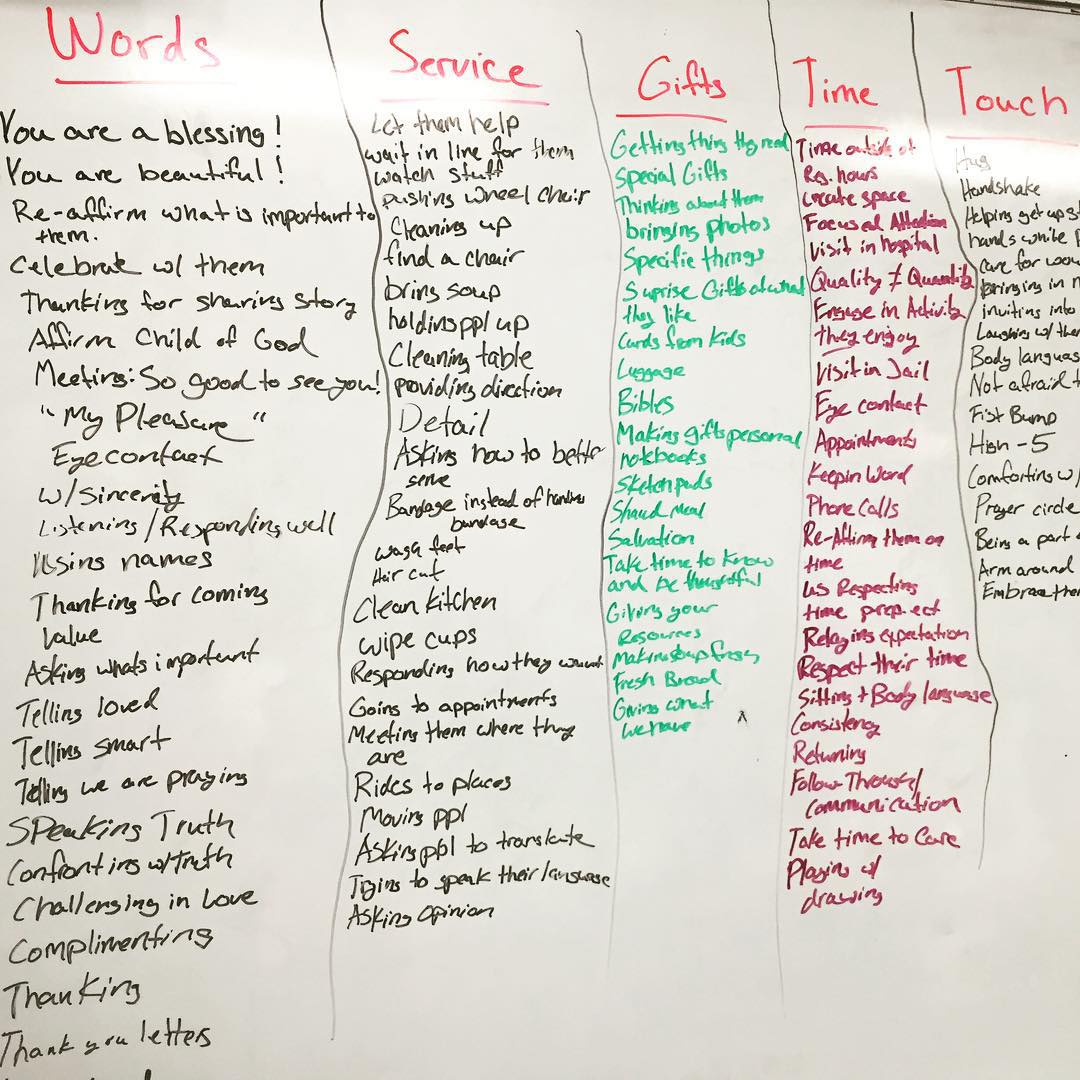 Words
You are a blessing!
You are beautiful!
Re-affirm what is important to
them.
Celebrate w/ them
Thanking for sharing story
Affirm Child of God
Meeting: So good to see you!
"My Pleasure"
Eye contact
w/ Sincerity
Listening / Responding well
Using names
Thanking for coming
Value
Asking whats important
Telling loved
Telling smart
Telling we are praying
Speaking Truth
Confronting w/ truth
Challenging in Love
Complimenting
Thanking
Thank you letters
Service
Let them help
wait in line for them
watch stuff
pushing wheel chair
Cleaning up
find a chair
bring soup
holding ppl up
Cleaning table
providing direction
Detail
Asking how to better
serve
Bandage instead of handing
bandage
wash feet
Hair cut
Clean Kitchen
wipe cups
Responding how they want
Going to appointments
Meeting them where they
are
Rides to places
Moving ppl
Asking ppl to translate
Trying to speak their language
Asking Opinion
Gifts
Getting thing they need
Special Gifts
Thinking about them
bringing photos
Specific things
Suprise Gifts of what
they like
Cards from Kids
Luggage
Bibles
Making gifts personal
notebooks
Sketch pads
Shared meal
Salvation
Take time to know
and be thoughtful
Giving your
Resources
Making soup fresh
Fresh Bread
Giving what
we have
Time
Time outside of
Reg. hours
create space
Focused Attention
Visit in hospital
Quality ≠ Quantity
Engage in Activity
they enjoy
Visit in Jail
Eye contact
Appointments
Keepin Word
Phone Calls
Re-Affirm them on
time
us Respecting
time
Relaying expectation
Respect their time
Sitting + Body language
Consistency
Returning
Follow Through/
communication
Take time to Care
Playing w/
drawing
Touch
Hug
Handshake
Helping get up
hands while
care for
bringing in
inviting into
Laughing w/
Body language
Not afraid
Fist Bump
High-5
Comforting w/
Prayer circle
Being a part
Arm around
Embrace